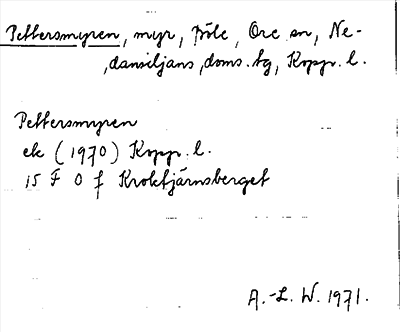 Pettersmyren, myr, Böle, Ore sn, Ne-
dansiljans, doms. hg, Kopp. l.
Pettersmyren
ek (1970) Kopp. l.
15 F 0 f Kroktjärnsberget
A.-L. W. 1971.